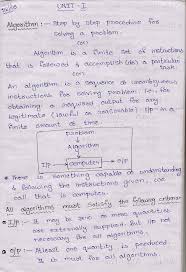 UNIT - I
Algorithm :- Step by step procedure for
solving a problem.
(or)
Algorithm is a finite set of instructions
that is followed & accomplish(es) a particular
task.
(or)
An algorithm is a sequence of unambiguous
instructions for solving problem i.e., for
obtaining a required output for any
legitimate (lawful or reasonable) I/P in a
finite amount of time.
Problem
Algorithm
I/P → computer → O/P
There is something capable of understanding
& following the instructions given, can
be call that is computer.
All algorithms must satisfy the following criteria:
I/p :- It may be zero or more quantities
are externally supplied but I/p not
necessary for all algorithms.
O/p :- Atleast one quantity is produced
It is must for all algorithms.